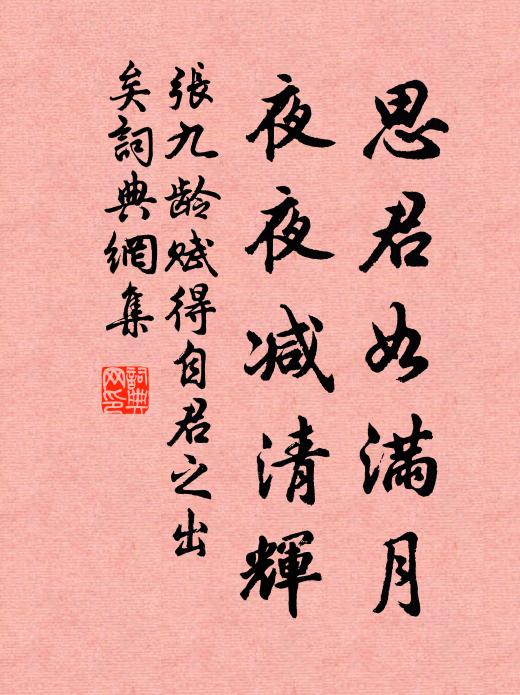 思君如满月
夜夜减清輝
張九龄赋得自君之出
矣詞典網集
詞典
网印